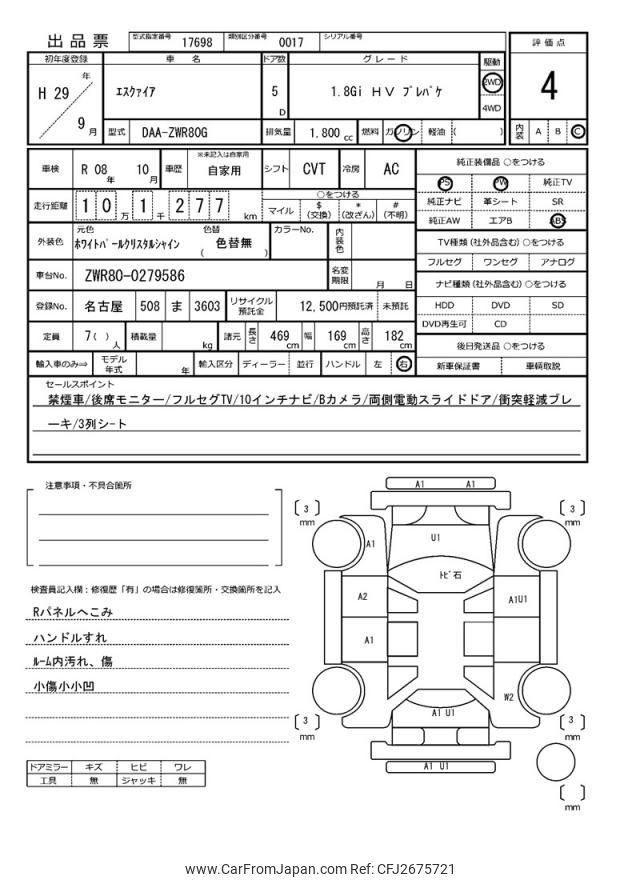 出品票
型式指定番号 17698 類別区分番号 0017 シリアル番号
評価点
初年度登録 車名 ドア数 グレード 駆動
H 29 年 9 月
エスクァイア 5 D 1.8Gi HV プレパケ 2WD 4WD
4
型式 DAA-ZWR80G 排気量 1,800 cc 燃料 ガソリン 軽油 ( )
内装 A B C
車検 R 08 年 10 月 車歴 ※未記入は自家用 自家用 シフト CVT 冷房 AC
純正装備品 ○をつける
PS PW 純正TV
純正ナビ 革シート SR
純正AW エアB ABS
走行距離 1 0 万 1 千 2 7 7 km
○をつける
マイル $ (交換) * (改ざん) # (不明)
外装色 元色 ホワイトパールクリスタルシャイン 色替 色替無 ( ) カラーNo. 内装色
TV種類 (社外品含む) ○をつける
フルセグ ワンセグ アナログ
車台No. ZWR80-0279586 名変期限 月 日
ナビ種類 (社外品含む) ○をつける
HDD DVD SD
DVD再生可 CD
登録No. 名古屋 508 ま 3603 リサイクル預託金 12,500円預託済 未預託
定員 7( ) 人 積載量 kg 諸元 長さ 469 cm 幅 169 cm 高さ 182 cm
後日発送品 ○をつける
新車保証書 車輌取説
輸入車のみ⇒ モデル年式 年 輸入区分 ディーラー 並行 ハンドル 左 右
セールスポイント
禁煙車/後席モニター/フルセグTV/10インチナビ/Bカメラ/両側電動スライドドア/衝突軽減ブレ
ーキ/3列シート
注意事項・不具合箇所
検査員記入欄:修復歴「有」の場合は修復箇所・交換箇所を記入
Rパネルへこみ
ハンドルすれ
ルーム内汚れ、傷
小傷小小凹
ドアミラー キズ ヒビ ワレ
工具 無 ジャッキ 無
A1 A1
3 mm
3 mm
A1
U1
トビ石
A2
A1U1
A1
W2
A1 U1
3 mm
3 mm
A1 U1
mm
www.CarFromJapan.com Ref: CFJ2675721